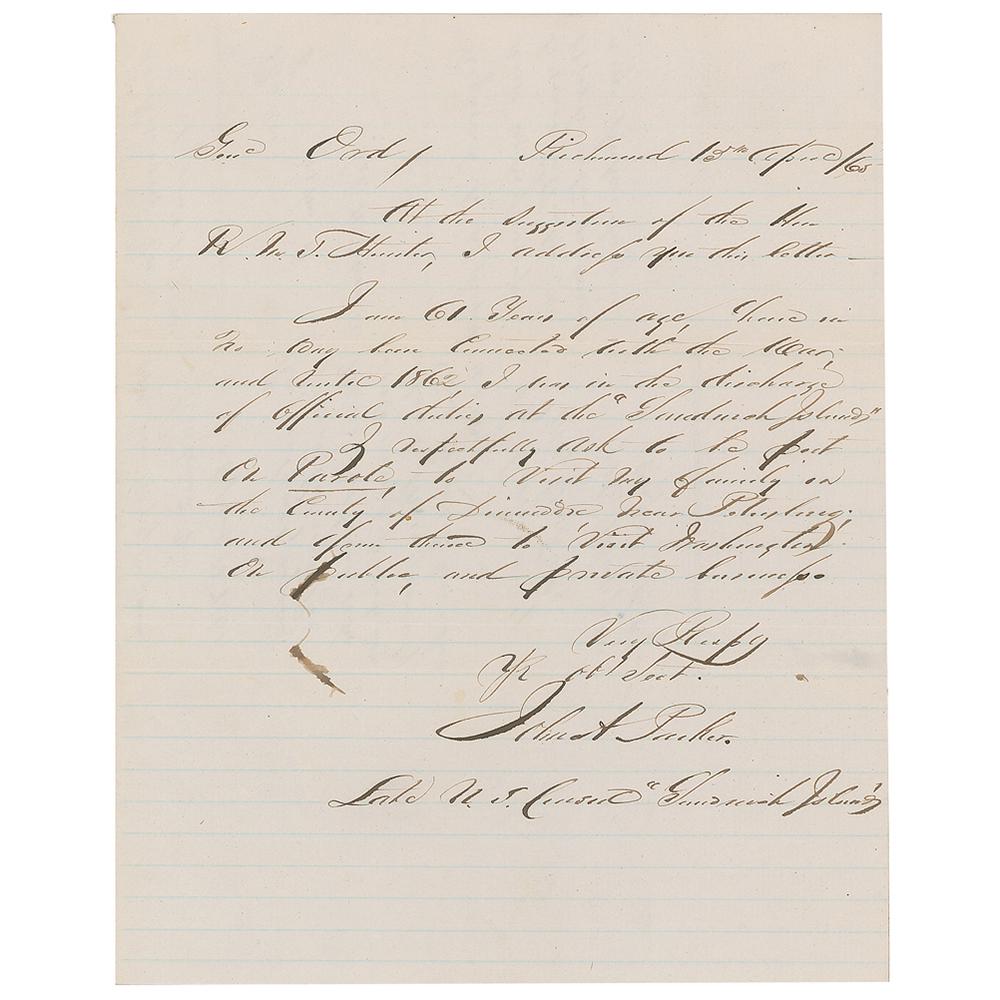 Genl Ord, Richmond 15th April /65
At the suggestion of the Hon
R. M. T. Hunter, I address you this letter —
I am 61 Years of age, have in
no way been Connected with the War,
and until 1862 I was in the discharge
of official duties at the "Sandwich Islands"
I respectfully ask to be put
on Parole, to visit my family in
the County of Dinwiddie near Petersburg,
and from thence to visit Washington
on public, and private business.
Very Respy
Yr obt Sevt.
John A Parker.
Late U. S. Consul "Sandwich Islands